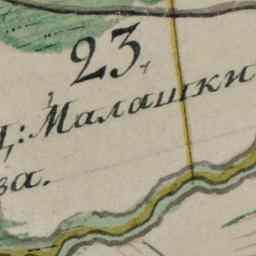 23
Д: Малашки
ва.